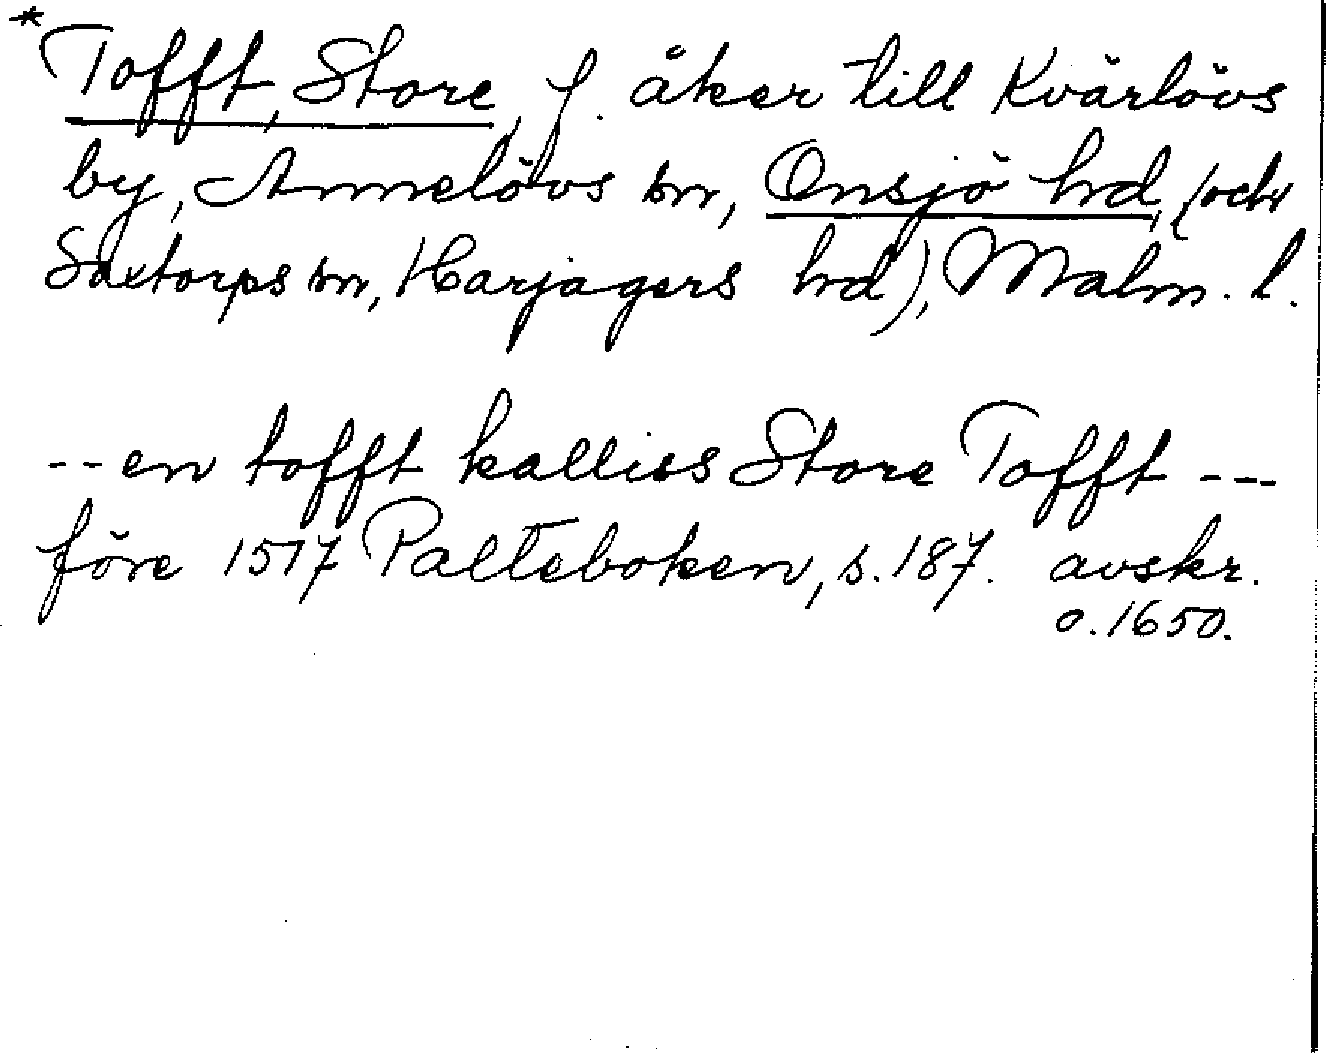 * Tofft, Store, f. åker till Kvärlövs
by, Annelövs sn, Onsjö hrd, (och
Saxtorps sn, Harjagers hrd), Malm. l.
-- en tofft kalliss Store Tofft ---
före 1517 Palteboken, s. 187. avskr.
o. 1650.